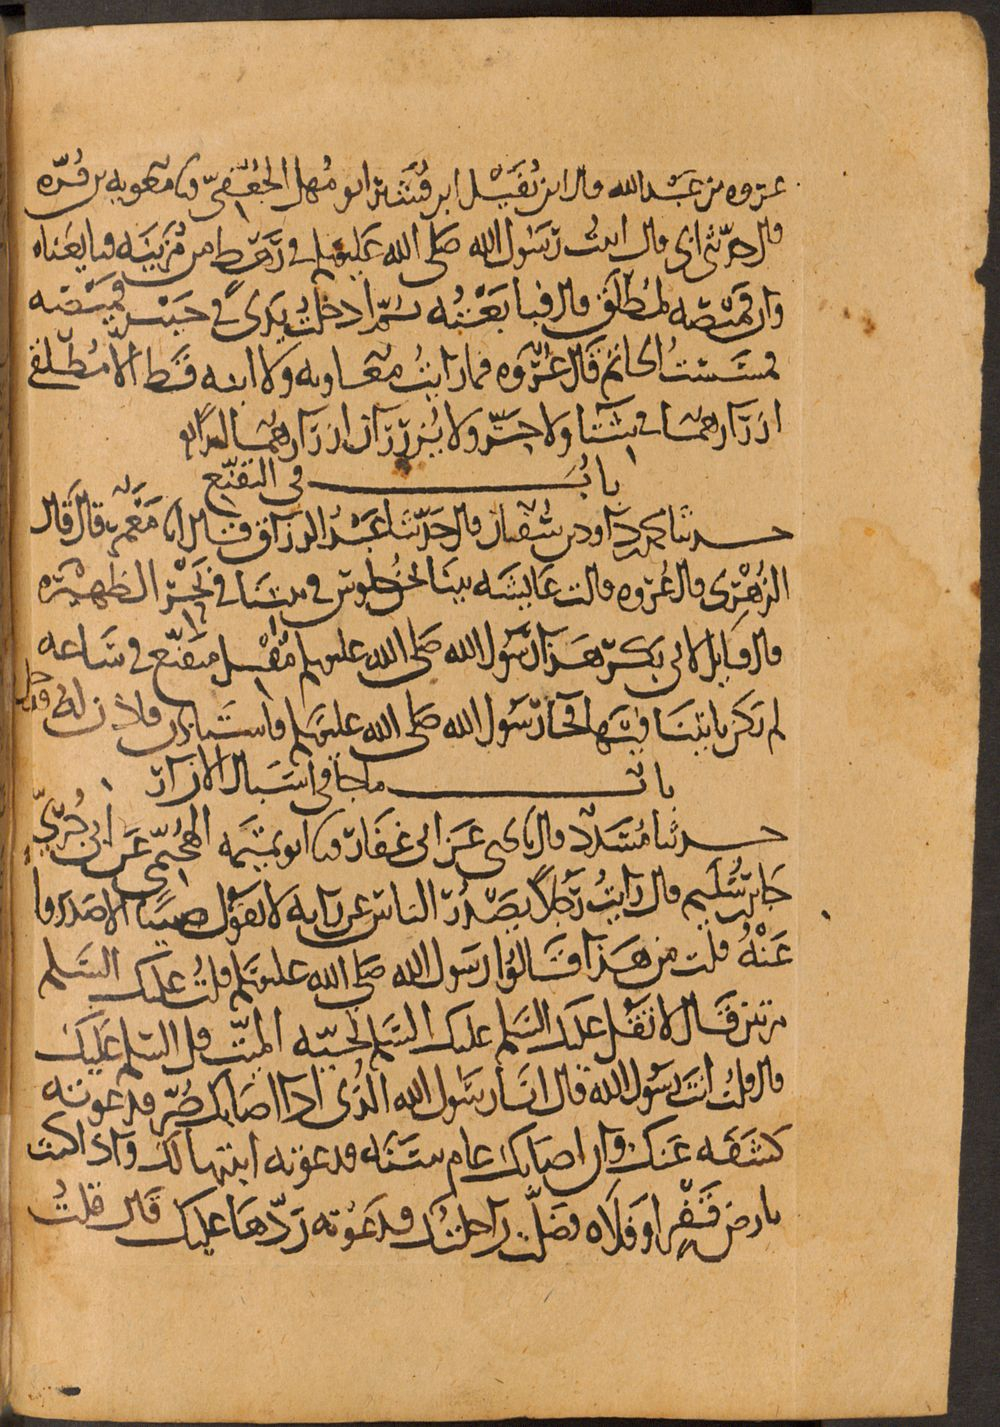 عروه بن عبد الله قال ابن نفيل ابن قشير ابو مهل الجعفي ثنا معويه بن قره
قال حدثني ابي قال اتيت رسول الله صلى الله عليه وسلم في رهط من مزينه فبايعناه
وان قميصه لمطلق قال فبايعته ثم ادخلت يدي في جيب قميصه
فمسست الخاتم قال عروه فما رايت معاويه ولا ابنه قط الا مطلقي
ازرارهما في شتا ولا حر ولا يزرران ازرارهما ابدا
باب في التقنع
حدثنا محمد بن داود بن سفيان قال حدثنا عبد الرزاق قال انا معمر قال قال
الزهري قال عروه قالت عايشه بينا نحن جلوس في بيتنا في نحر الظهيره
قال قايل لابي بكر هذا رسول الله صلى الله عليه وسلم مقبل متقنع في ساعه
لم يكن ياتينا فيها فجا رسول الله صلى الله عليه وسلم فاستاذن فاذن له فدخل
باب ما جا في اسبال الازار
حدثنا مسدد قال نا يحيى عن ابي غفار ثنا ابو تميمه الهجيمي عن ابي جري
جابر بن سليم قال رايت رجلا يصدر الناس عن رايه لا يقول شيا الا صدروا
عنه قلت من هذا قالوا رسول الله صلى الله عليه وسلم قلت عليك السلم
مرتين قال لا تقل عليك السلم عليك السلم تحيه الميت قل السلم عليك
قال قلت انت رسول الله قال انا رسول الله الذي اذا اصابك ضر فدعوته
كشفه عنك وان اصابك عام سنه فدعوته انبتها لك واذا كنت
بارض قفر او فلاه فضلت راحلتك فدعوته ردها عليك قال قلت